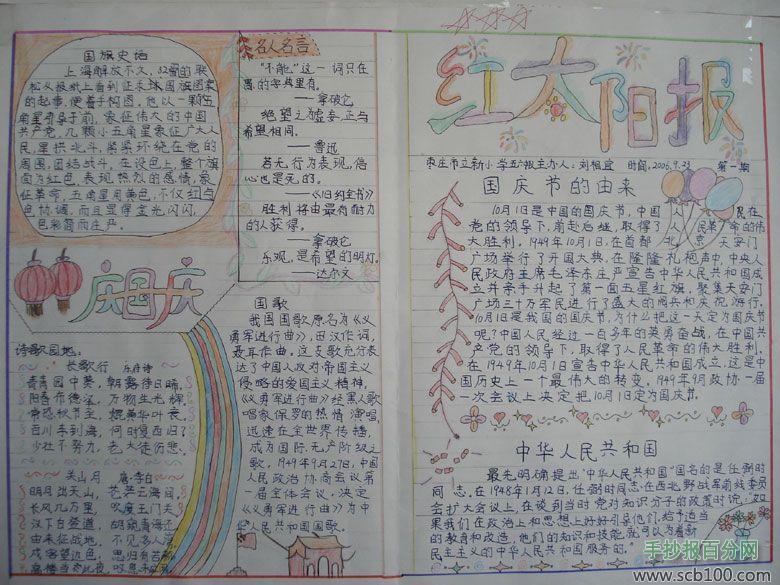 国旗史话
上海解放不久，32岁的联
松义报纸上看到征求国旗图案
的起事，便着手构图，他以一颗五
角星引导于前，象征伟大的中国
共产党，几颗小五角星象征广大人
民，星拱北斗，紧紧环绕在党的
周围，团结战斗，在设色上，整个旗
面为红色，表现热烈的感情，象
征革命，五角星用黄色，不仅红与
色协调，而且显得金光闪闪，
色彩简雨庄严。
名人名言
"不能"这一词只在
愚的字典里有。
——拿破它
绝望之虚妄，正与
希望相同。
——鲁迅
若无行为表现，信
心也是死的。
——《旧约全书》
胜利将由最有耐力
的人获得。
——拿破它
乐观，是希望的明灯。
——达尔文
庆国庆
诗歌园地：
长歌行 乐府诗
青青园中葵，朝露待日晞，
阳春布德泽，万物生光辉，
常恐秋节至，焜黄华叶衰，
百川东到海，何时复西归？
少壮不努力，老大徒伤悲。
关山月 唐·李白
明月出天山，苍茫云海间，
长风几万里，吹度玉门关，
汉下白登道，胡窥青海湾，
由来征战地，不见多人还
戍客望边色，思归多苦颜
高楼当此夜，叹息未
国歌
我国国歌原名为《义
勇军进行曲》，田汉作词，
聂耳作曲。这支歌充分表
达了中国人权对帝国主义
侵略的爱国主义精神，
《义勇军进行曲》经黑人歌
唱家保罗的热情演唱，
迅速在全世界传播，
成为国际无产阶级之
歌，1949年9月27日，中国
人民政治协商会议第
一届全体会议，决定
《义勇军进行曲》为中
华人民共和国国歌。
红太阳报
枣庄市立新小学五 主办人：刘相宜 时间：2006.9.23 第一期
国庆节的由来
10月1日是中国的国庆节，中国人 在
党的领导下，前赴后继，取得了 民革命的伟
大胜利。1949年10月1日，在首都北京天安门
广场举行了开国大典，在隆隆礼炮声中，中央人
民政府主席毛泽东庄严宣告中华人民共和国成
立并亲手升起了第一面五星红旗，聚集天安门
广场三十万军民进行了盛大的阅兵和庆祝游行。
10月1日是我国的国庆节，为什么把这一天定为国庆节
呢？中国人民经过一百多年的英勇奋战，在中国共
产党的领导下，取得了人民革命的伟大胜利。
在1949年10月1日宣告中华人民共和国成立，这是中
国历史上一个最伟大的转变，1949年9月政协一届
一次会议上决定把10月1日定为国庆节。
中华人民共和国
最先明确提出"中华人民共和国"国名的是任弼时
同志。在1948年1月12日，任弼时同志在西北野战军前线委员
会扩大会议上，在谈到当时党对知识分子的政策时说，如
果我们在政治上和思想上好好引导他们，给予适当
的教育和改造，他们的知识和技能，就可以为着新
民主主义的中华人民共和国服务的。
手抄报百分网
www.scb100.com